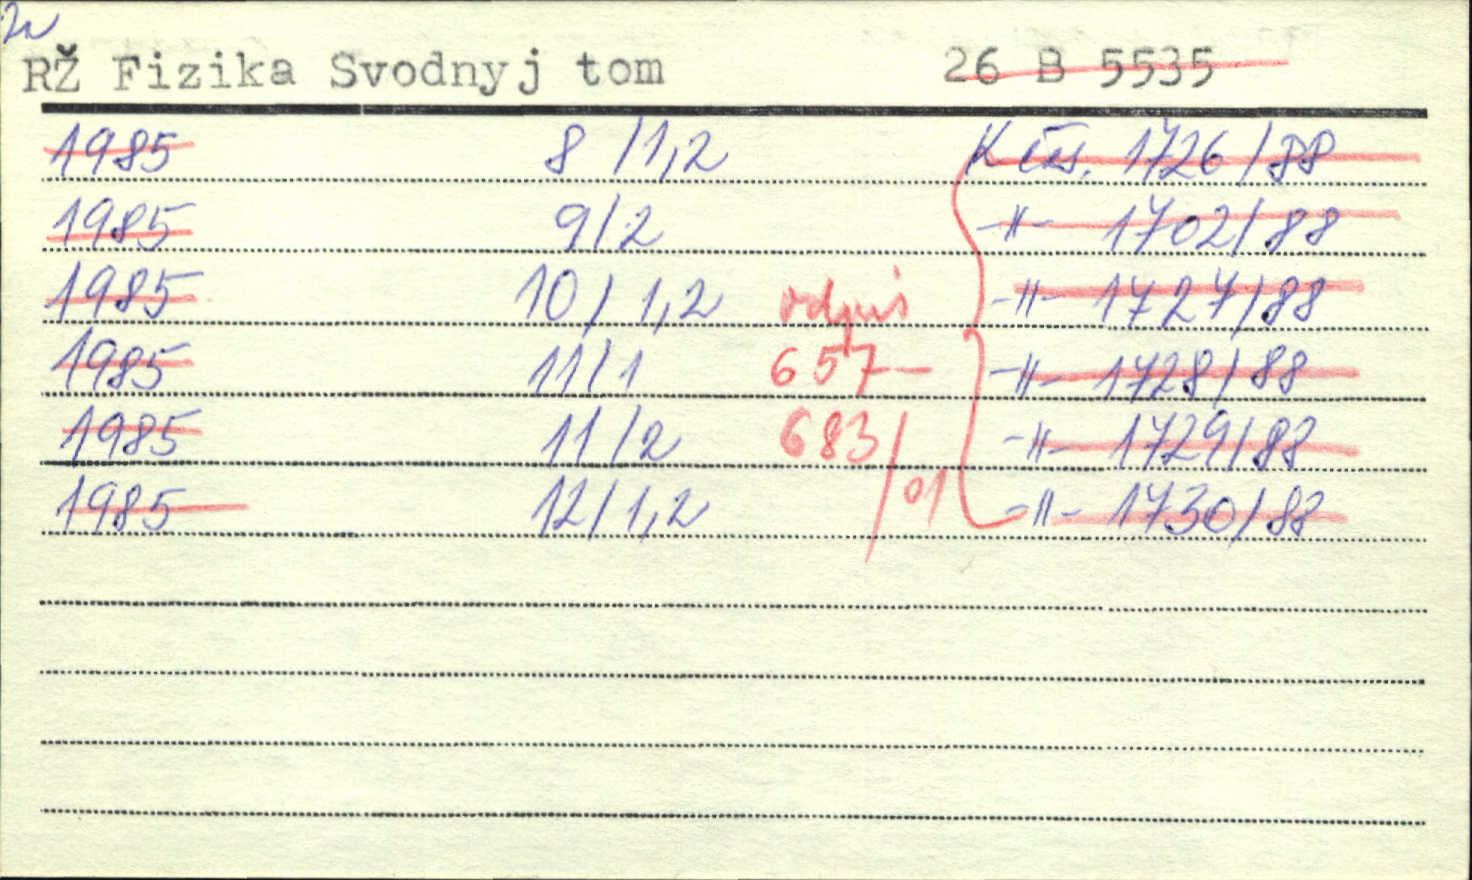 2a
RŽ Fizika Svodnyj tom 26 B 5535
1985 8/1,2 K čís. 1726/88
1985 9/2 -"- 1702/88
1985 10/1,2 odpis -"- 1727/88
1985 11/1 657- -"- 1728/88
1985 11/2 683/01 -"- 1729/88
1985 12/1,2 -"- 1730/88